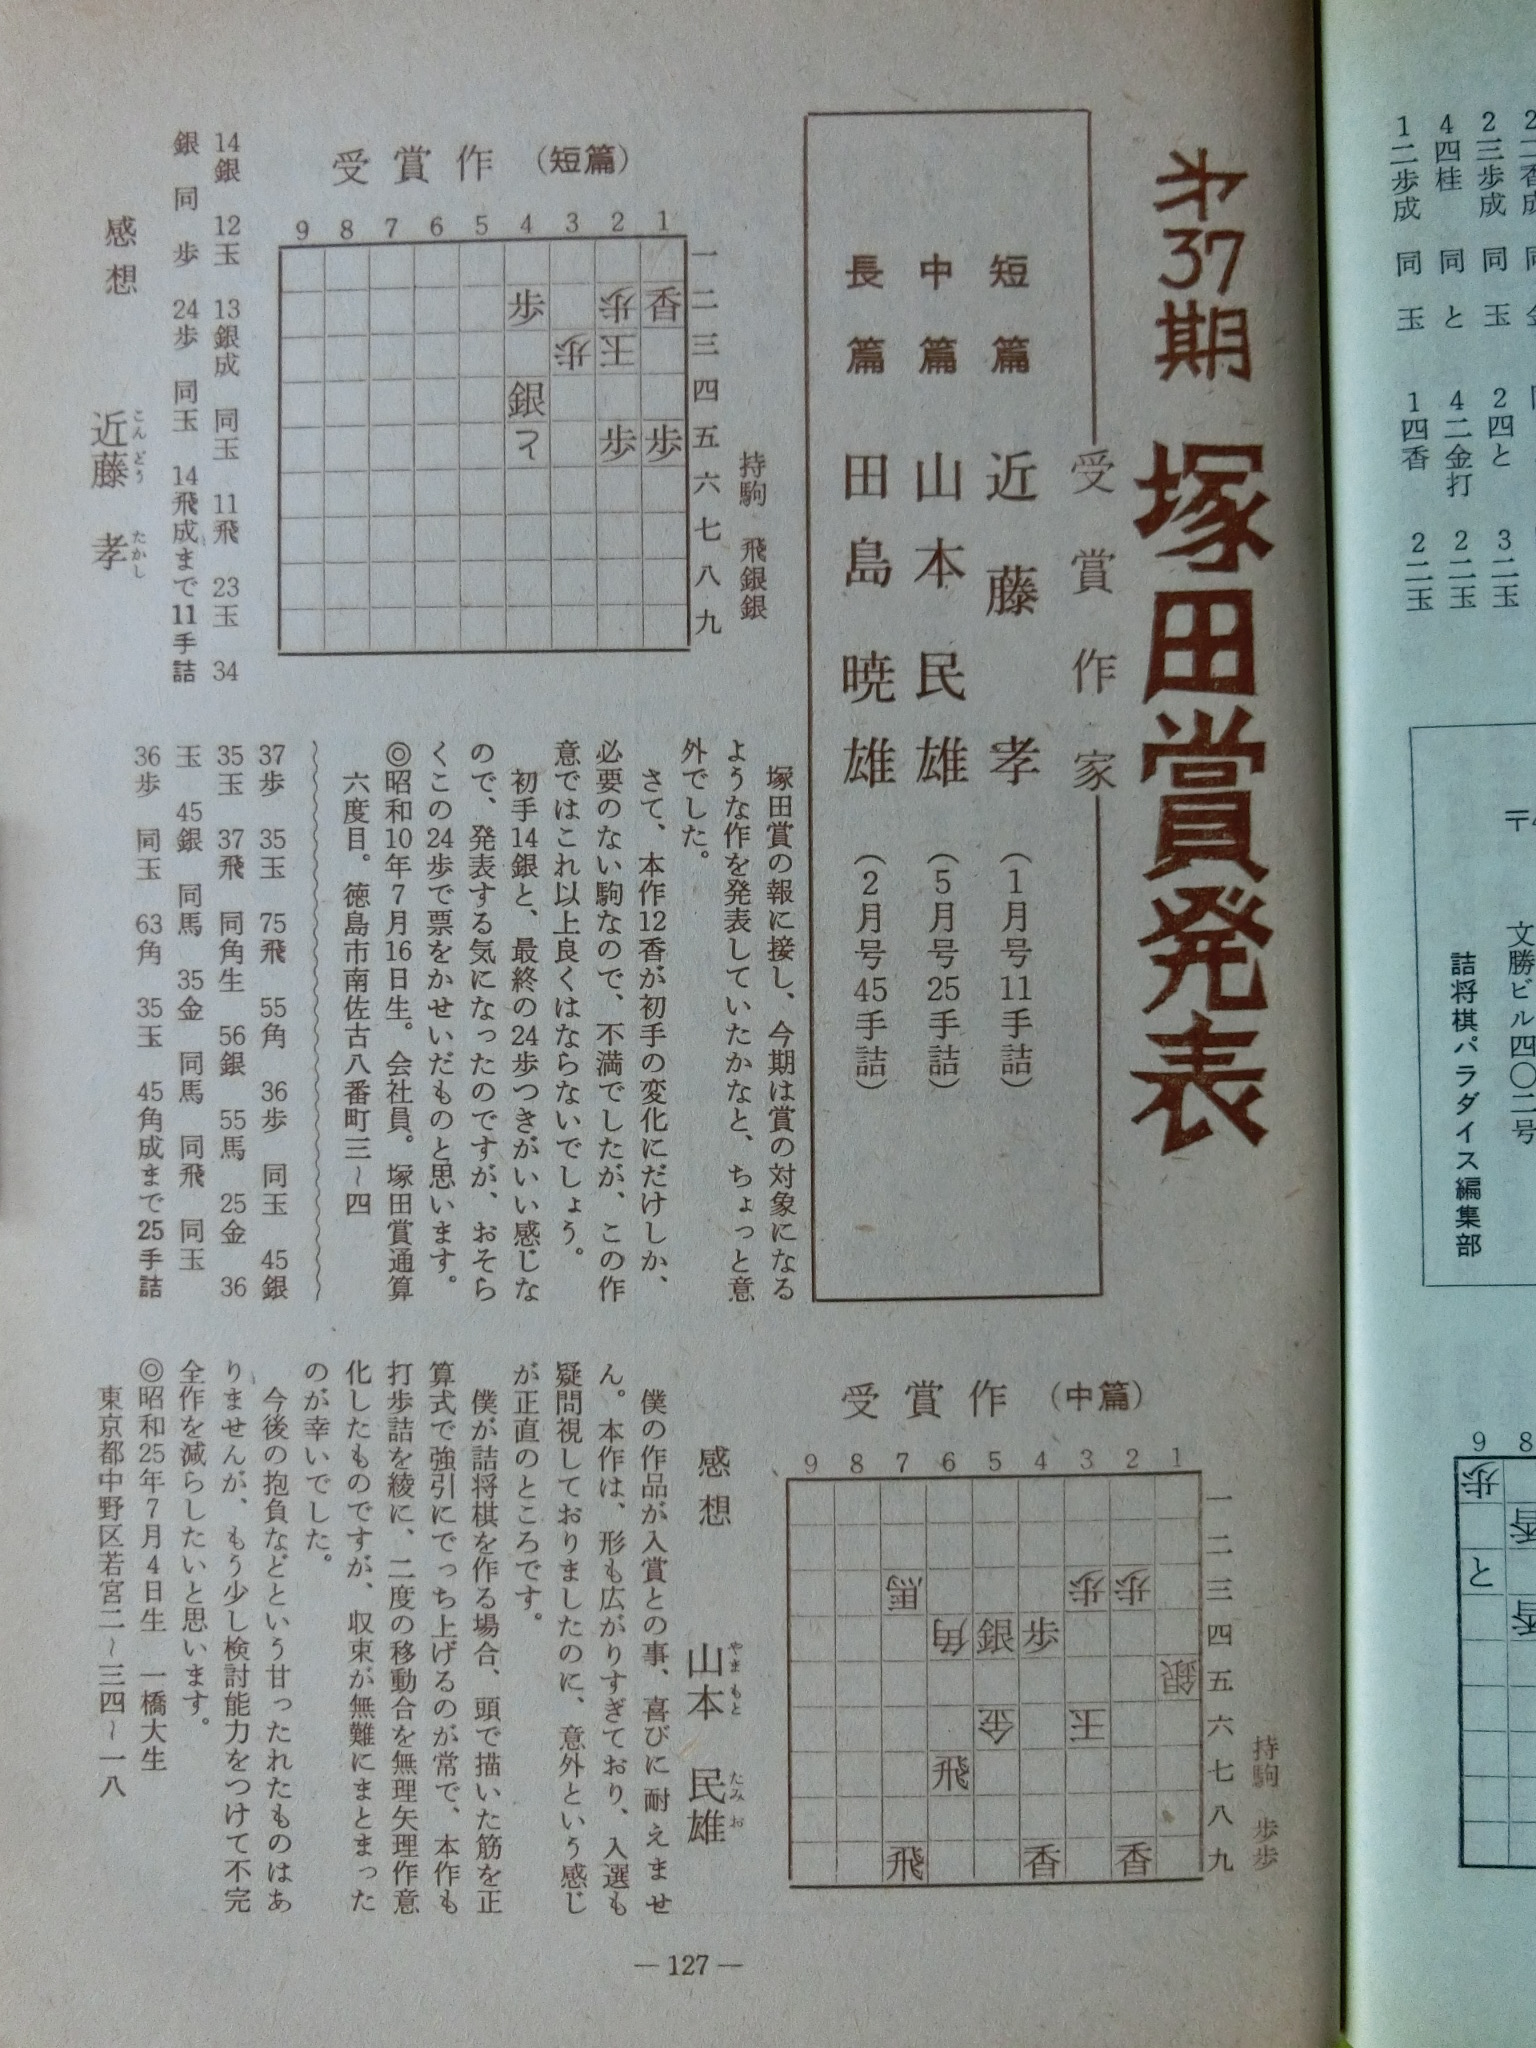 第37期 塚田賞発表
受賞作家
短篇 近藤 孝 (1月号11手詰)
中篇 山本民雄 (5月号25手詰)
長篇 田島暁雄 (2月号45手詰)
受賞作 (短篇)
9 8 7 6 5 4 3 2 1
一
歩 歩 香 二
歩 玉 三
銀 四
歩 歩 五
六
七
八
九
持駒 飛銀銀
14銀 12玉 13銀成 同玉 11飛 23玉 34
銀 同歩 24歩 同玉 14飛成まで11手詰
感想
近藤 孝
こんどう たかし
塚田賞の報に接し、今期は賞の対象になる
ような作を発表していたかなと、ちょっと意
外でした。
さて、本作12香が初手の変化にだけしか、
必要のない駒なので、不満でしたが、この作
意ではこれ以上良くはならないでしょう。
初手14銀と、最終の24歩つきがいい感じな
ので、発表する気になったのですが、おそら
くこの24歩で票をかせいだものと思います。
◎昭和10年7月16日生。会社員。塚田賞通算
六度目。徳島市南佐古八番町三~四
受賞作 (中篇)
9 8 7 6 5 4 3 2 1
一
二
馬 歩 歩 三
角 銀 歩 四
銀 五
金 玉 六
飛 七
八
飛 香 香 九
持駒 歩歩
37歩 35玉 75飛 55角 36歩 同玉 45銀
35玉 37飛 同角生 56銀 55馬 25金 36
玉 45銀 同馬 35金 同馬 同飛 同玉
36歩 同玉 63角 35玉 45角成まで25手詰
感想
山本 民雄
やまもと たみお
僕の作品が入賞との事、喜びに耐えませ
ん。本作は、形も広がりすぎており、入選も
疑問視しておりましたのに、意外という感じ
が正直のところです。
僕が詰将棋を作る場合、頭で描いた筋を正
算式で強引にでっち上げるのが常で、本作も
打歩詰を綾に、二度の移動合を無理矢理作意
化したものですが、収束が無難にまとまった
のが幸いでした。
今後の抱負などという甘ったれたものはあ
りませんが、もう少し検討能力をつけて不完
全作を減らしたいと思います。
◎昭和25年7月4日生 一橋大生
東京都中野区若宮二~三四~一八
—127—
2三歩成 同玉 2四と 3二玉
4四桂 同と 4二金打 2二玉
1二歩成 同玉 1四香 2二玉
文勝ビル四〇二号
詰将棋パラダイス編集部
9 8
歩
香
と
香